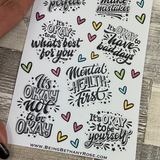 perfect
make
mistakes
it's OKAY
to do
what's best
for you
it's OKAY
to Have
bad days
It's
OKAY
not to
be
OKAY
Mental
HEALTH
First
it's
OKAY
to be
yourself
www.BeingBethanyRose.com